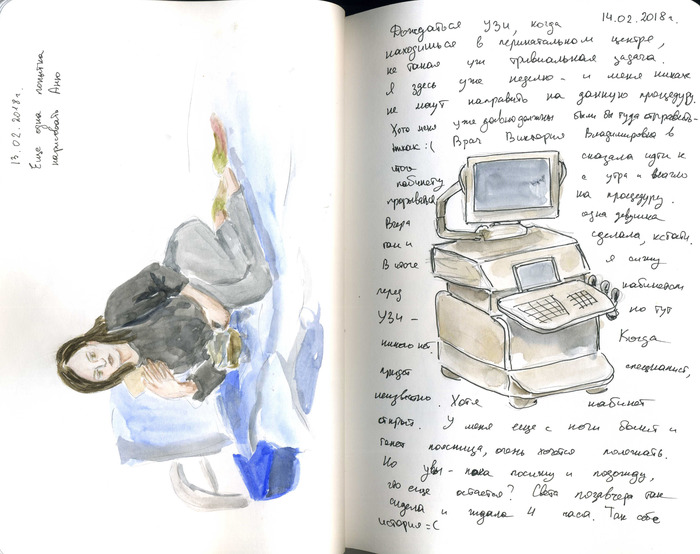 13.02.2018г.
Еще одна попытка
нарисовать Аню
14.02.2018г.
Дождаться УЗИ, когда
находишься в перинатальном центре,
не такая уж тривиальная задача.
Я здесь уже неделю - и меня никак
не могут направить на данную процедуру.
Хотя меня уже давно должны были бы туда отправить-
никак :( Врач Виктория Владимировна в
итоге сказала идти к
кабинету с утра и внагло
прорываться на процедуру.
Вчера одна девушка
так и сделала, кстати.
В итоге я сижу
перед кабинетом
УЗИ - но тут
никого нет. Когда
придет специалист,
неизвестно. Хотя кабинет
открыт. У меня еще с ночи болит и
тянет поясница, очень хочется полежать.
Но увы - пока посижу и подожду,
что еще остается? Света позавчера так
сидела и ждала 4 часа. Так себе
история =(